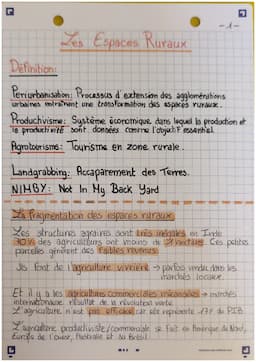 -1-
Les Espaces Ruraux
Définition:
Periurbanisation: Processus d'extension des agglomérations
urbaines entraînent une transformation des espaces ruraux.
Productivisme: Système économique dans lequel la production et
la productivité sont données comme l'objectif essentiel.
Agrotoerisms: Tourisme en zone rurale.
Landgrabbing: Accaparement des Terres.
NIMBY: Not In My Back Yard
La fragmentation des espaces ruraux
Les structures agraires sont très inégales en Inde
70% des agriculteurs ont moins de 2 hectares. Ces petites
parcelles génèrent des faibles revenus.
Ils font de l'agriculture vivrière → parfois vendue dans les
marchés locaux.
Et il y a les agricultures commerciales mécanisées → marchés
internationaux résultat de la révolution verte.
L'agriculture n'est pas efficace car elle représente 17% du PIB.
L'agriculture productiviste/commerciale se fait en Amérique du Nord,
Europe de l'ouest, Australie et au Brésil.